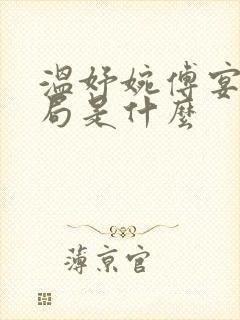 温妤婉傅宴
局是什麼
薄京官